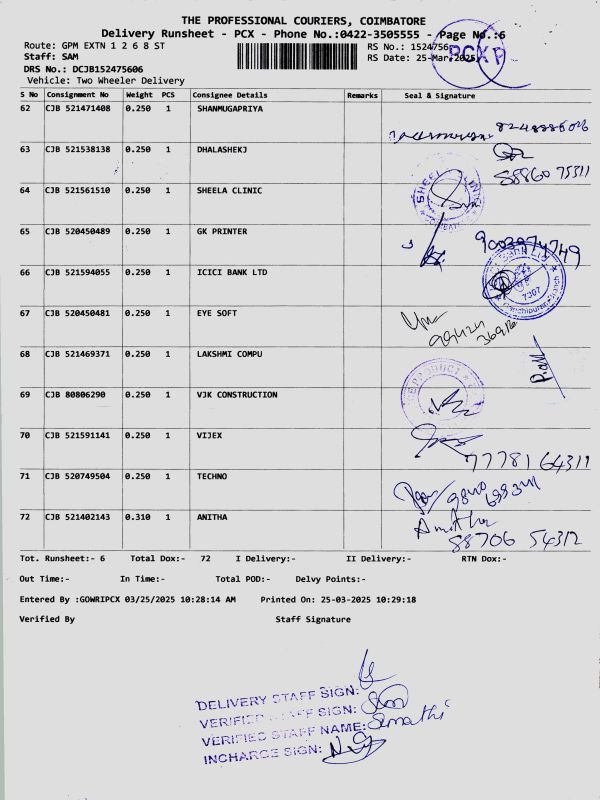 THE PROFESSIONAL COURIERS, COIMBATORE
Delivery Runsheet - PCX - Phone No.:0422-3505555 - Page No.:6
Route: GPM EXTN 1 2 6 8 ST
RS No.: 1524756
Staff: SAM
RS Date: 25-Mar-2025
DRS No.: DCJB152475606
Vehicle: Two Wheeler Delivery
PCX P
S No Consignment No Weight PCS Consignee Details Remarks Seal & Signature
62 CJB 521471408 0.250 1 SHANMUGAPRIYA
63 CJB 521538138 0.250 1 DHALASHEKJ
88860 75311
64 CJB 521561510 0.250 1 SHEELA CLINIC
SHEELA CLINIC
65 CJB 520450489 0.250 1 GK PRINTER
9003974749
66 CJB 521594055 0.250 1 ICICI BANK LTD
Bank Ltd
7307
Kanchipuram
67 CJB 520450481 0.250 1 EYE SOFT
68 CJB 521469371 0.250 1 LAKSHMI COMPU
69 CJB 80806290 0.250 1 VJK CONSTRUCTION
70 CJB 521591141 0.250 1 VIJEX
77781 64311
71 CJB 520749504 0.250 1 TECHNO
72 CJB 521402143 0.310 1 ANITHA
Anitha
88706 54312
Tot. Runsheet:- 6 Total Dox:- 72 I Delivery:- II Delivery:- RTN Dox:-
Out Time:- In Time:- Total POD:- Delvy Points:-
Entered By :GOWRIPCX 03/25/2025 10:28:14 AM Printed On: 25-03-2025 10:29:18
Verified By Staff Signature
DELIVERY STAFF SIGN:
VERIFIED STAFF SIGN:
VERIFIED STAFF NAME: Sumathi
INCHARGE SIGN: